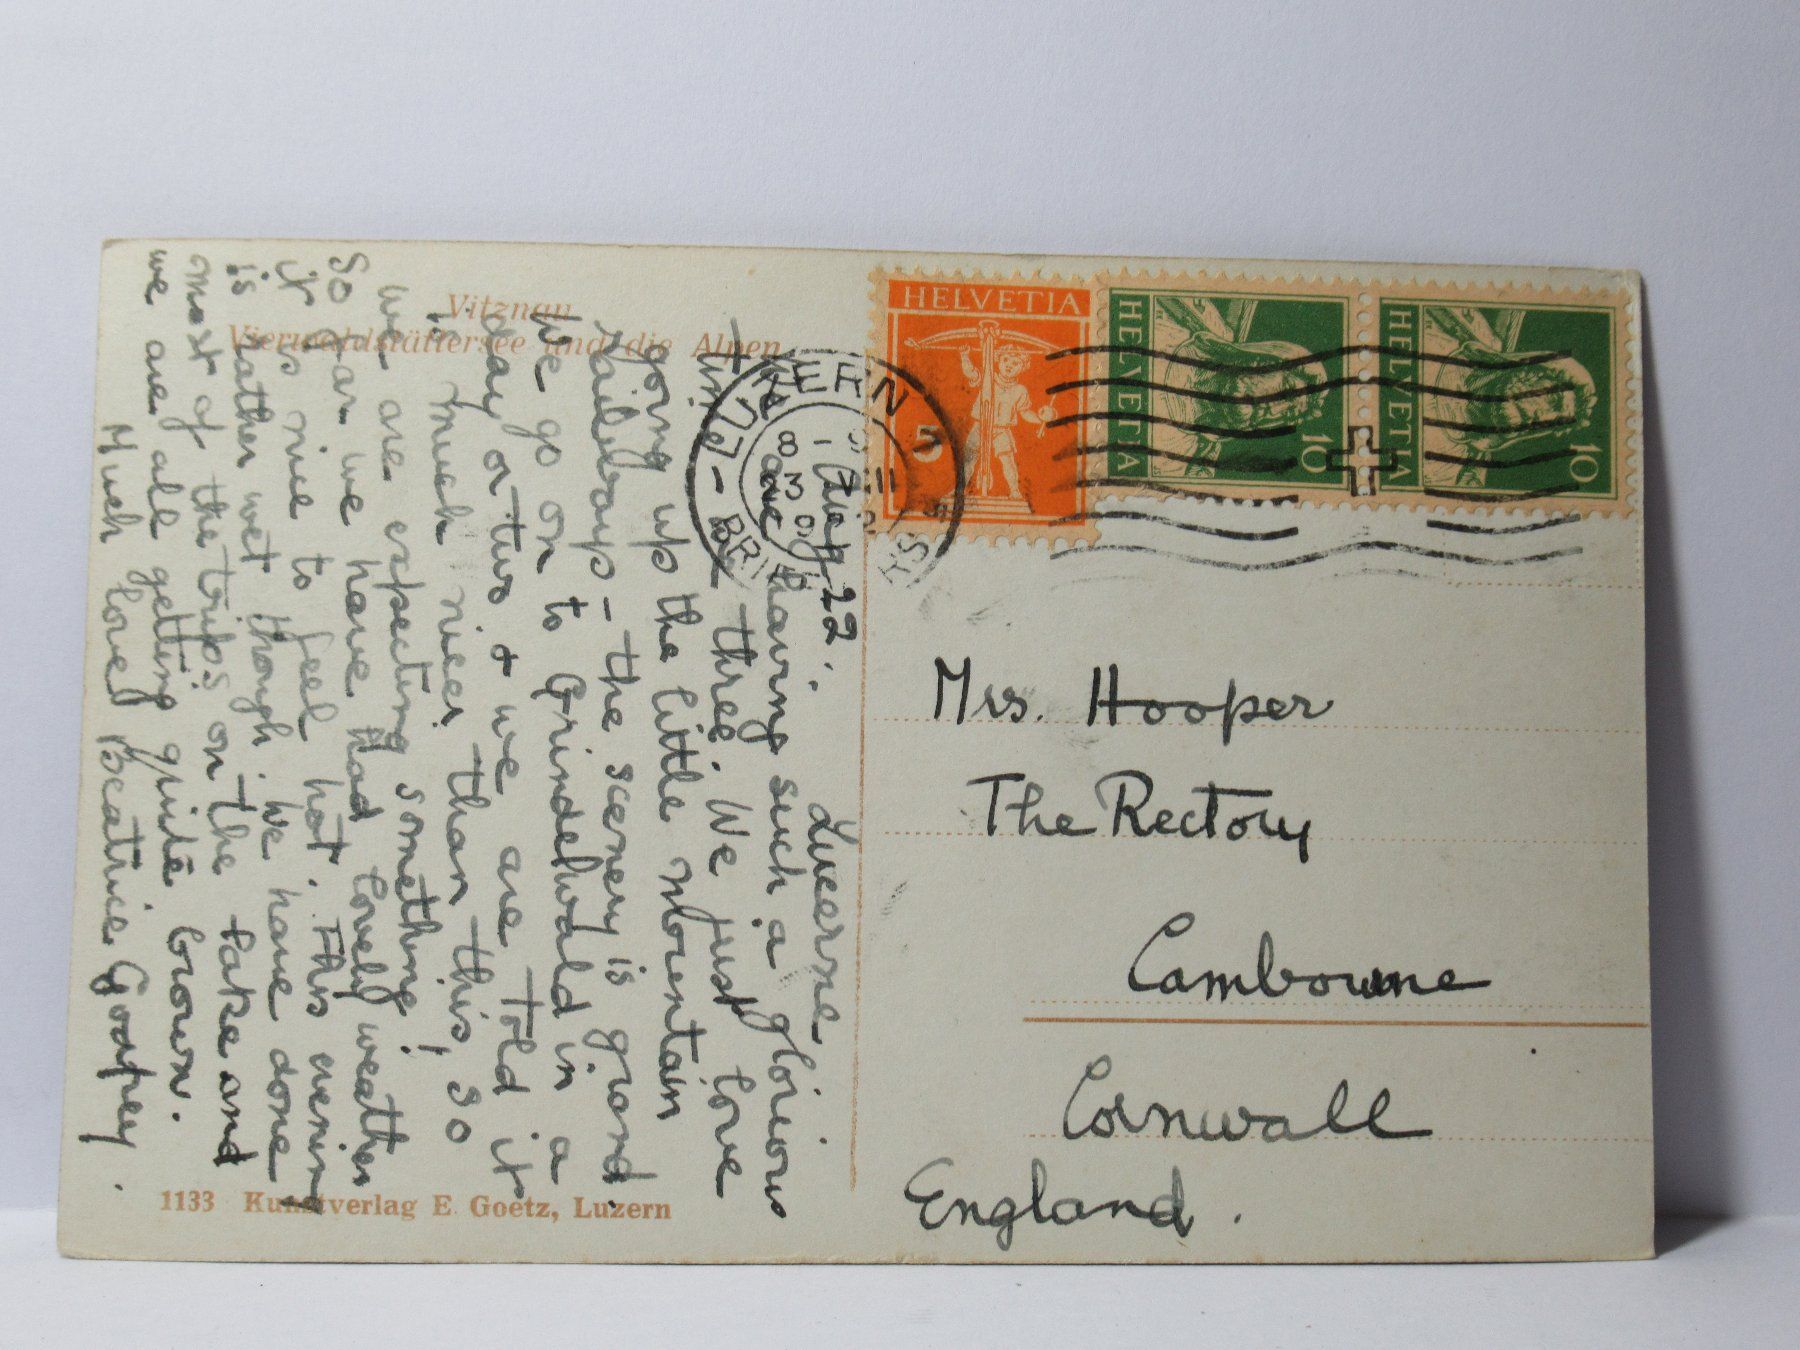 Vitznau
Vierwaldstättersee und die Alpen
Lucerne
Aug 22.
We are having such a glorious
time - three. We just love
going up the little mountain
railways - the scenery is grand.
We go on to Grindelwald in a
day or two & we are told it
is much nicer than this, so
we are expecting something!
So far we have had lovely weather
it is nice to feel hot. This evening
is rather wet though. We have done
most of the trips on the lake and
we are all getting quite brown.
Much love Beatrice Goospey.
1133 Kunstverlag E. Goetz, Luzern
LUZERN
HELVETIA
5
HELVETIA
10
HELVETIA
10
Mrs. Hooper
The Rectory
Cambourne
Cornwall
England.